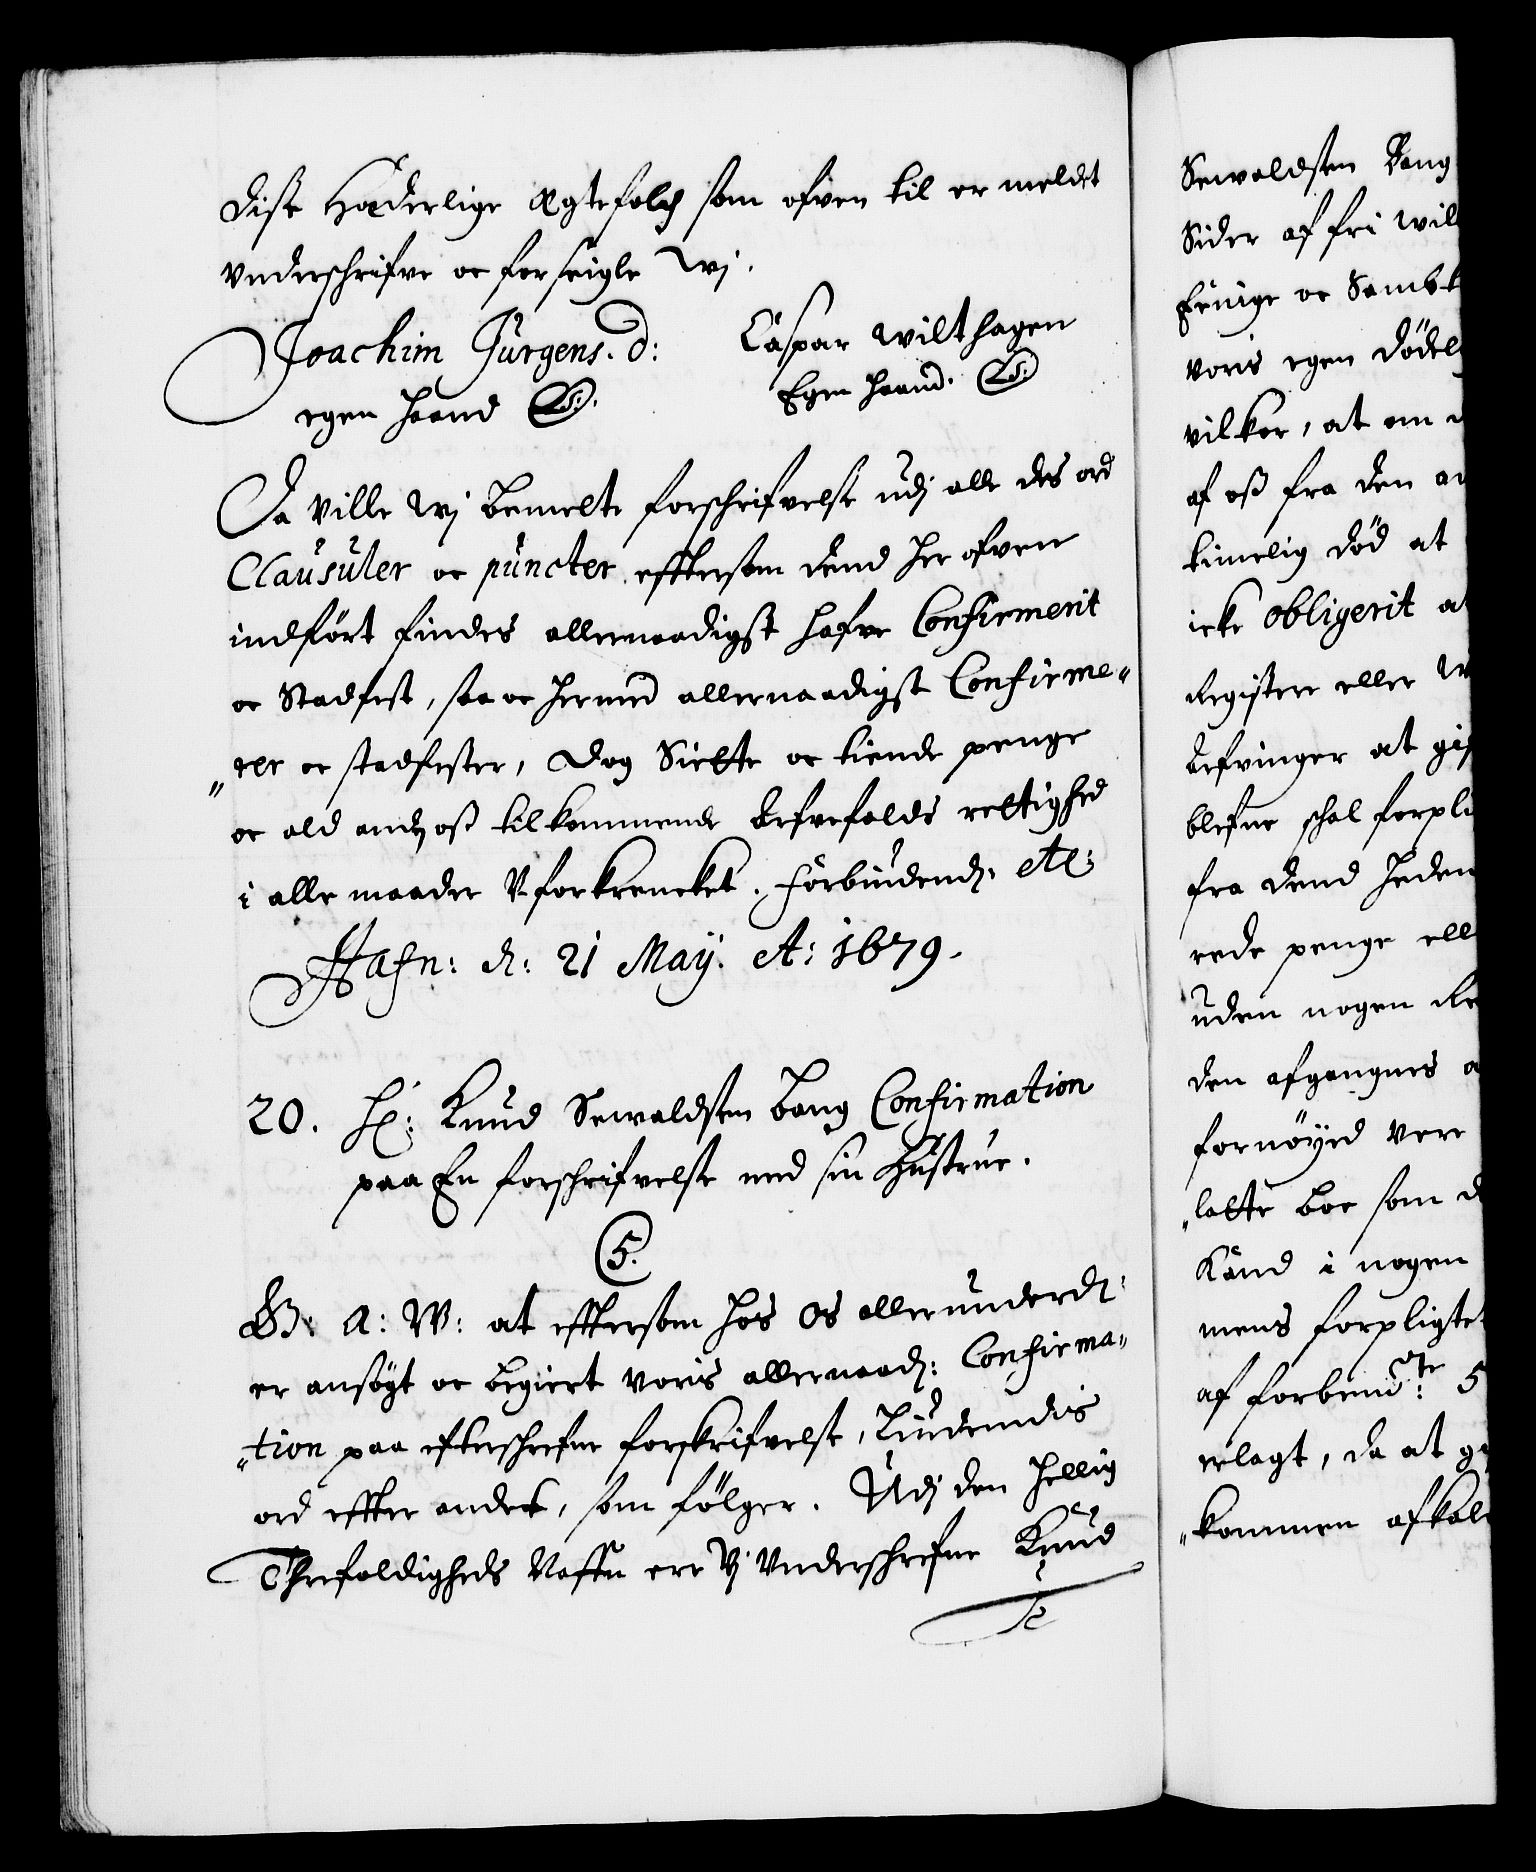 Diße Hæderlige Ægtefolch som ofven til er meldet
Underschrifve oc forseigle Wj.
Joachim Jürgens. d: Caspar Wilthagen
egen haand LS. Egen haand. LS.
Da Ville Wj bemelte forschrifvelse udj alle des ord
Clausuler oc puncter effttersom dend her ofven
indført findes allernaadigst hafve Confirmerit
oc Stadfest, saa oc hermed allernaadigst Confirme„
„rer oc stadfester, Dog Siette oc tiende penge
oc ald anden oß tilkommende Arfvefalds rettighed
i alle maader U-forkrencket. Forbiudend: etc:
Hafn: d: 21 May. A: 1679.
20. Hr: Knud Sewaldsen bang Confirmation
paa En forschrifvelse med sin Hustrue.
5.
G: A: W: at efftersom hos Os allerunderd:
er ansøgt oc begiert voris allernaad: Confirma„
„tion paa efterschrefne forskrifvelse, Liudendis
ord effter andet, som følger. Udj den hellig
Threfoldigheds Naffn ere Vj Underschrefne Knud
Se
Sewaldsen Bang
Sider af fri Will
Eenige oc Samb
voris egen dødel
vilkor, at om
af oß fra den an
timelig død at
icke obligerit at
Registere eller W
Arfvinger at gif
blefne schal forpli
fra dend heden
rede penge ell
uden nogen Re
den afgangnes
fornøyed vere
„latte boe som d
Kand i nogen
mens forpligtet
af forbemte: 5
erlagt, da at g
„kommen afkal